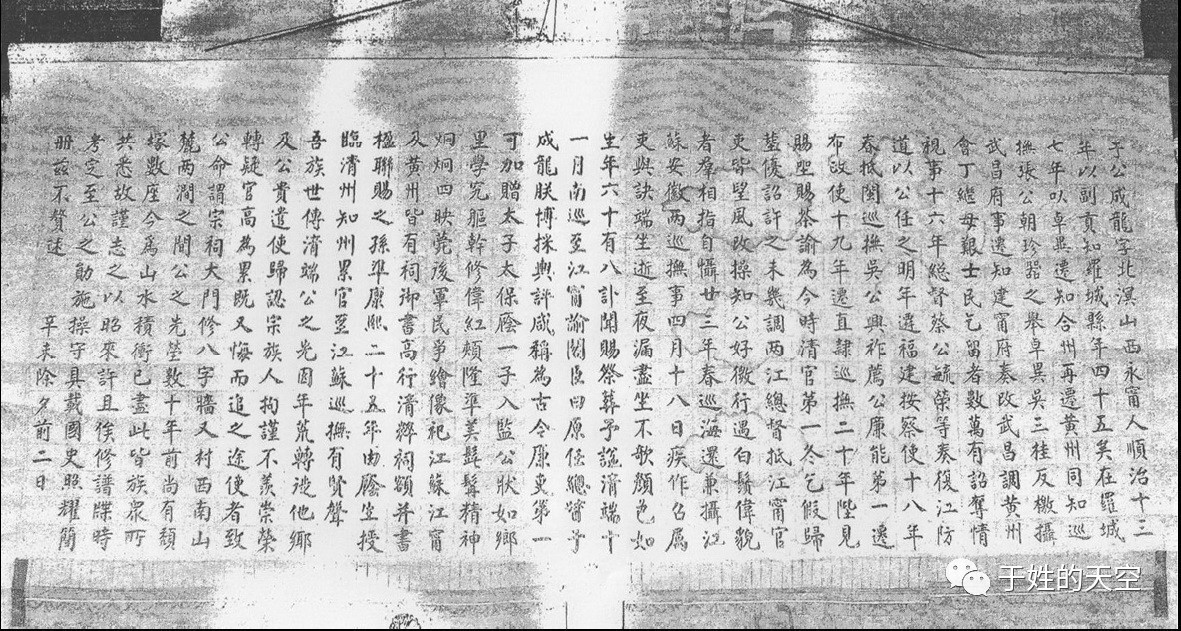 于公成龍字北溟山西永甯人順治十三
年以副貢知羅城縣年四十五矣在羅城
七年以卓異遷知合州再遷黃州同知巡
撫張公朝珍器之舉卓異吳三桂反檄攝
武昌府事遷知建甯府奏改武昌調黃州
會丁繼母艱士民乞留者數萬有詔奪情
視事十六年總督蔡公毓榮等奏復江防
道以公任之明年遷福建按察使十八年
春抵閩巡撫吳公興祚薦公廉能第一遷
布政使十九年遷直隸巡撫二十年陛見
賜坐賜茶諭為今時清官第一冬乞假歸
葬優詔許之未幾調两江總督抵江甯官
吏皆望風改操知公好微行遇白鬚偉貌
者羣相指自懾廿三年春巡海還兼攝江
蘇安徽两巡撫事四月十八日疾作召屬
吏與訣端坐逝至夜漏盡坐不欹顏色如
生年六十有八訃聞賜祭葬予諡清端十
一月南巡至江甯諭閣臣曰原任總督于
成龍朕博採輿評咸稱為古今廉吏第一
可加贈太子太保廕一子入監公狀如鄉
里學究軀幹修偉紅頰隆準美髭髯精神
炯炯四映薨後軍民爭繪像祀江蘇江甯
及黃州皆有祠御書高行清粹祠額并書
楹聯賜之孫準康熙二十五年由廕生授
臨清州知州累官至江蘇巡撫有賢聲
吾族世傳清端公之先因年荒轉徙他鄉
及公貴遣使歸認宗族人拘謹不羨崇榮
轉疑官高為累既又悔而追之途使者致
公命謂宗祠大門修八字牆又村西南山
麓两澗之間公之先塋數十年前尚有頹
塚數座今為山水積衝已盡此皆族眾所
共悉故謹志之以昭來許且俟修譜牒時
考定至公之勛施操守具載國史照耀簡
册兹不贅述　辛未除夕前二日
于姓的天空